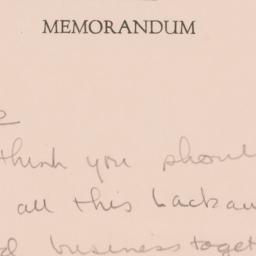 MEMORANDUM
think you shoul
all this back an
d business toget